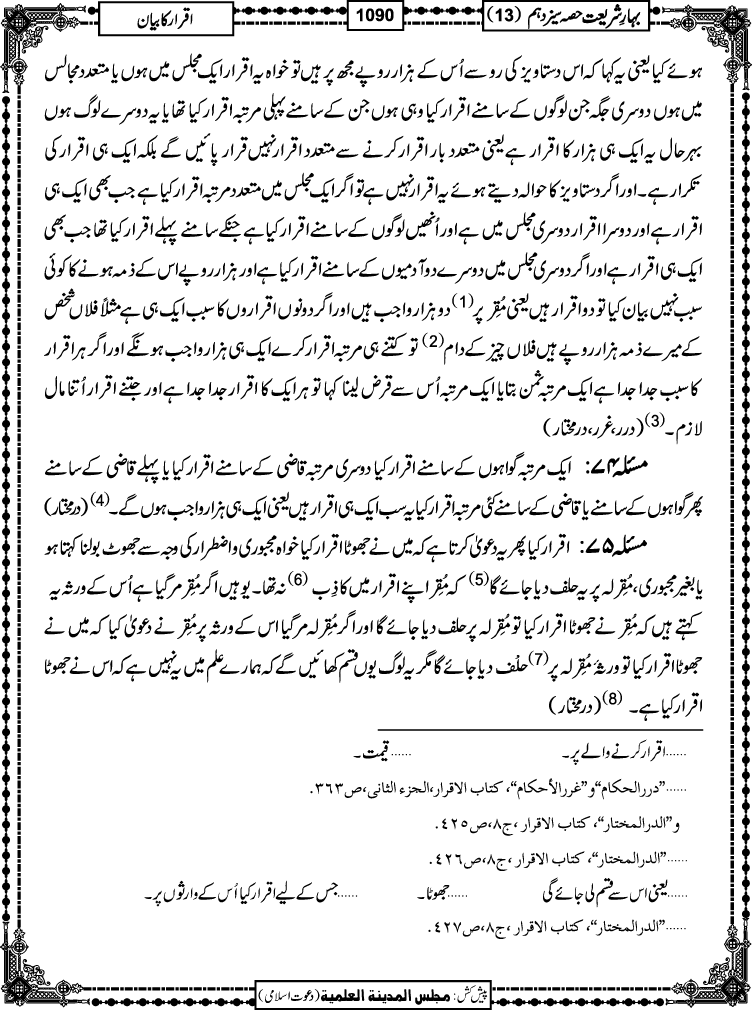 بہارِشریعت حصہ سیزدہم (13)
1090
اقرار کا بیان
ہوئے کیا یعنی یہ کہا کہ اس دستاویز کی رو سے اُس کے ہزار روپے مجھ پر ہیں تو خواہ یہ اقرار ایک مجلس میں ہوں یا متعدد مجالس
میں ہوں دوسری جگہ جن لوگوں کے سامنے اقرار کیا وہی ہوں جن کے سامنے پہلی مرتبہ اقرار کیا تھا یا یہ دوسرے لوگ ہوں
بہرحال یہ ایک ہی ہزار کا اقرار ہے یعنی متعدد بار اقرار کرنے سے متعدد اقرار نہیں قرار پائیں گے بلکہ ایک ہی اقرار کی
تکرار ہے۔ اور اگر دستاویز کا حوالہ دیتے ہوئے یہ اقرار نہیں ہے تو اگر ایک مجلس میں متعدد مرتبہ اقرار کیا ہے جب بھی ایک ہی
اقرار ہے اور دوسرا اقرار دوسری مجلس میں ہے اور اُنھیں لوگوں کے سامنے اقرار کیا ہے جنکے سامنے پہلے اقرار کیا تھا جب بھی
ایک ہی اقرار ہے اور اگر دوسری مجلس میں دوسرے دو آدمیوں کے سامنے اقرار کیا ہے اور ہزار روپے اس کے ذمہ ہونے کا کوئی
سبب نہیں بیان کیا تو دو اقرار ہیں یعنی مُقِر پر(1) دو ہزار واجب ہیں اور اگر دونوں اقراروں کا سبب ایک ہی ہے مثلاً فلاں شخص
کے میرے ذمہ ہزار روپے ہیں فلاں چیز کے دام(2) تو کتنے ہی مرتبہ اقرار کرے ایک ہی ہزار واجب ہونگے اور اگر ہر اقرار
کا سبب جدا جدا ہے ایک مرتبہ ثمن بتایا ایک مرتبہ اُس سے قرض لینا کہا تو ہر ایک کا اقرار جدا جدا ہے اور جتنے اقرار اُتنا مال
لازم۔(3) (درر، غرر، درمختار)
مسئلہ ۷۴: ایک مرتبہ گواہوں کے سامنے اقرار کیا دوسری مرتبہ قاضی کے سامنے اقرار کیا یا پہلے قاضی کے سامنے
پھر گواہوں کے سامنے یا قاضی کے سامنے کئی مرتبہ اقرار کیا یہ سب ایک ہی اقرار ہیں یعنی ایک ہی ہزار واجب ہوں گے۔(4) (درمختار)
مسئلہ ۷۵: اقرار کیا پھر یہ دعویٰ کرتا ہے کہ میں نے جھوٹا اقرار کیا خواہ مجبوری واضطرار کی وجہ سے جھوٹ بولنا کہتا ہو
یا بغیر مجبوری، مُقِرلہ پر یہ حلف دیا جائے گا(5) کہ مُقِر اپنے اقرار میں کاذِب (6) نہ تھا۔ یوہیں اگر مُقِر مرگیا ہے اُس کے ورثہ یہ
کہتے ہیں کہ مُقِر نے جھوٹا اقرار کیا تو مُقِرلہ پر حلف دیا جائے گا اور اگر مُقِرلہ مرگیا اس کے ورثہ پر مُقِر نے دعویٰ کیا کہ میں نے
جھوٹا اقرار کیا تو ورثۂ مُقِرلہ پر(7) حلْف دیا جائے گا مگر یہ لوگ یوں قسم کھائیں گے کہ ہمارے علم میں یہ نہیں ہے کہ اس نے جھوٹا
اقرار کیا ہے۔ (8) (درمختار)
......اقرار کرنے والے پر۔ ......قیمت۔
......”دررالحکام“ و ”غررالأحکام“، کتاب الاقرار، الجزء الثانی، ص۳۶۳.
و ”الدرالمختار“، کتاب الاقرار ، ج۸، ص۴۲۵.
......”الدرالمختار“، کتاب الاقرار ، ج۸، ص۴۲۶.
......یعنی اس سے قسم لی جائے گی ......جھوٹا۔ ......جس کے لیے اقرار کیا اُس کے وارثوں پر۔
......”الدرالمختار“، کتاب الاقرار ، ج۸، ص۴۲۷.
پیش کش: مجلس المدینۃ العلمیۃ (دعوت اسلامی)